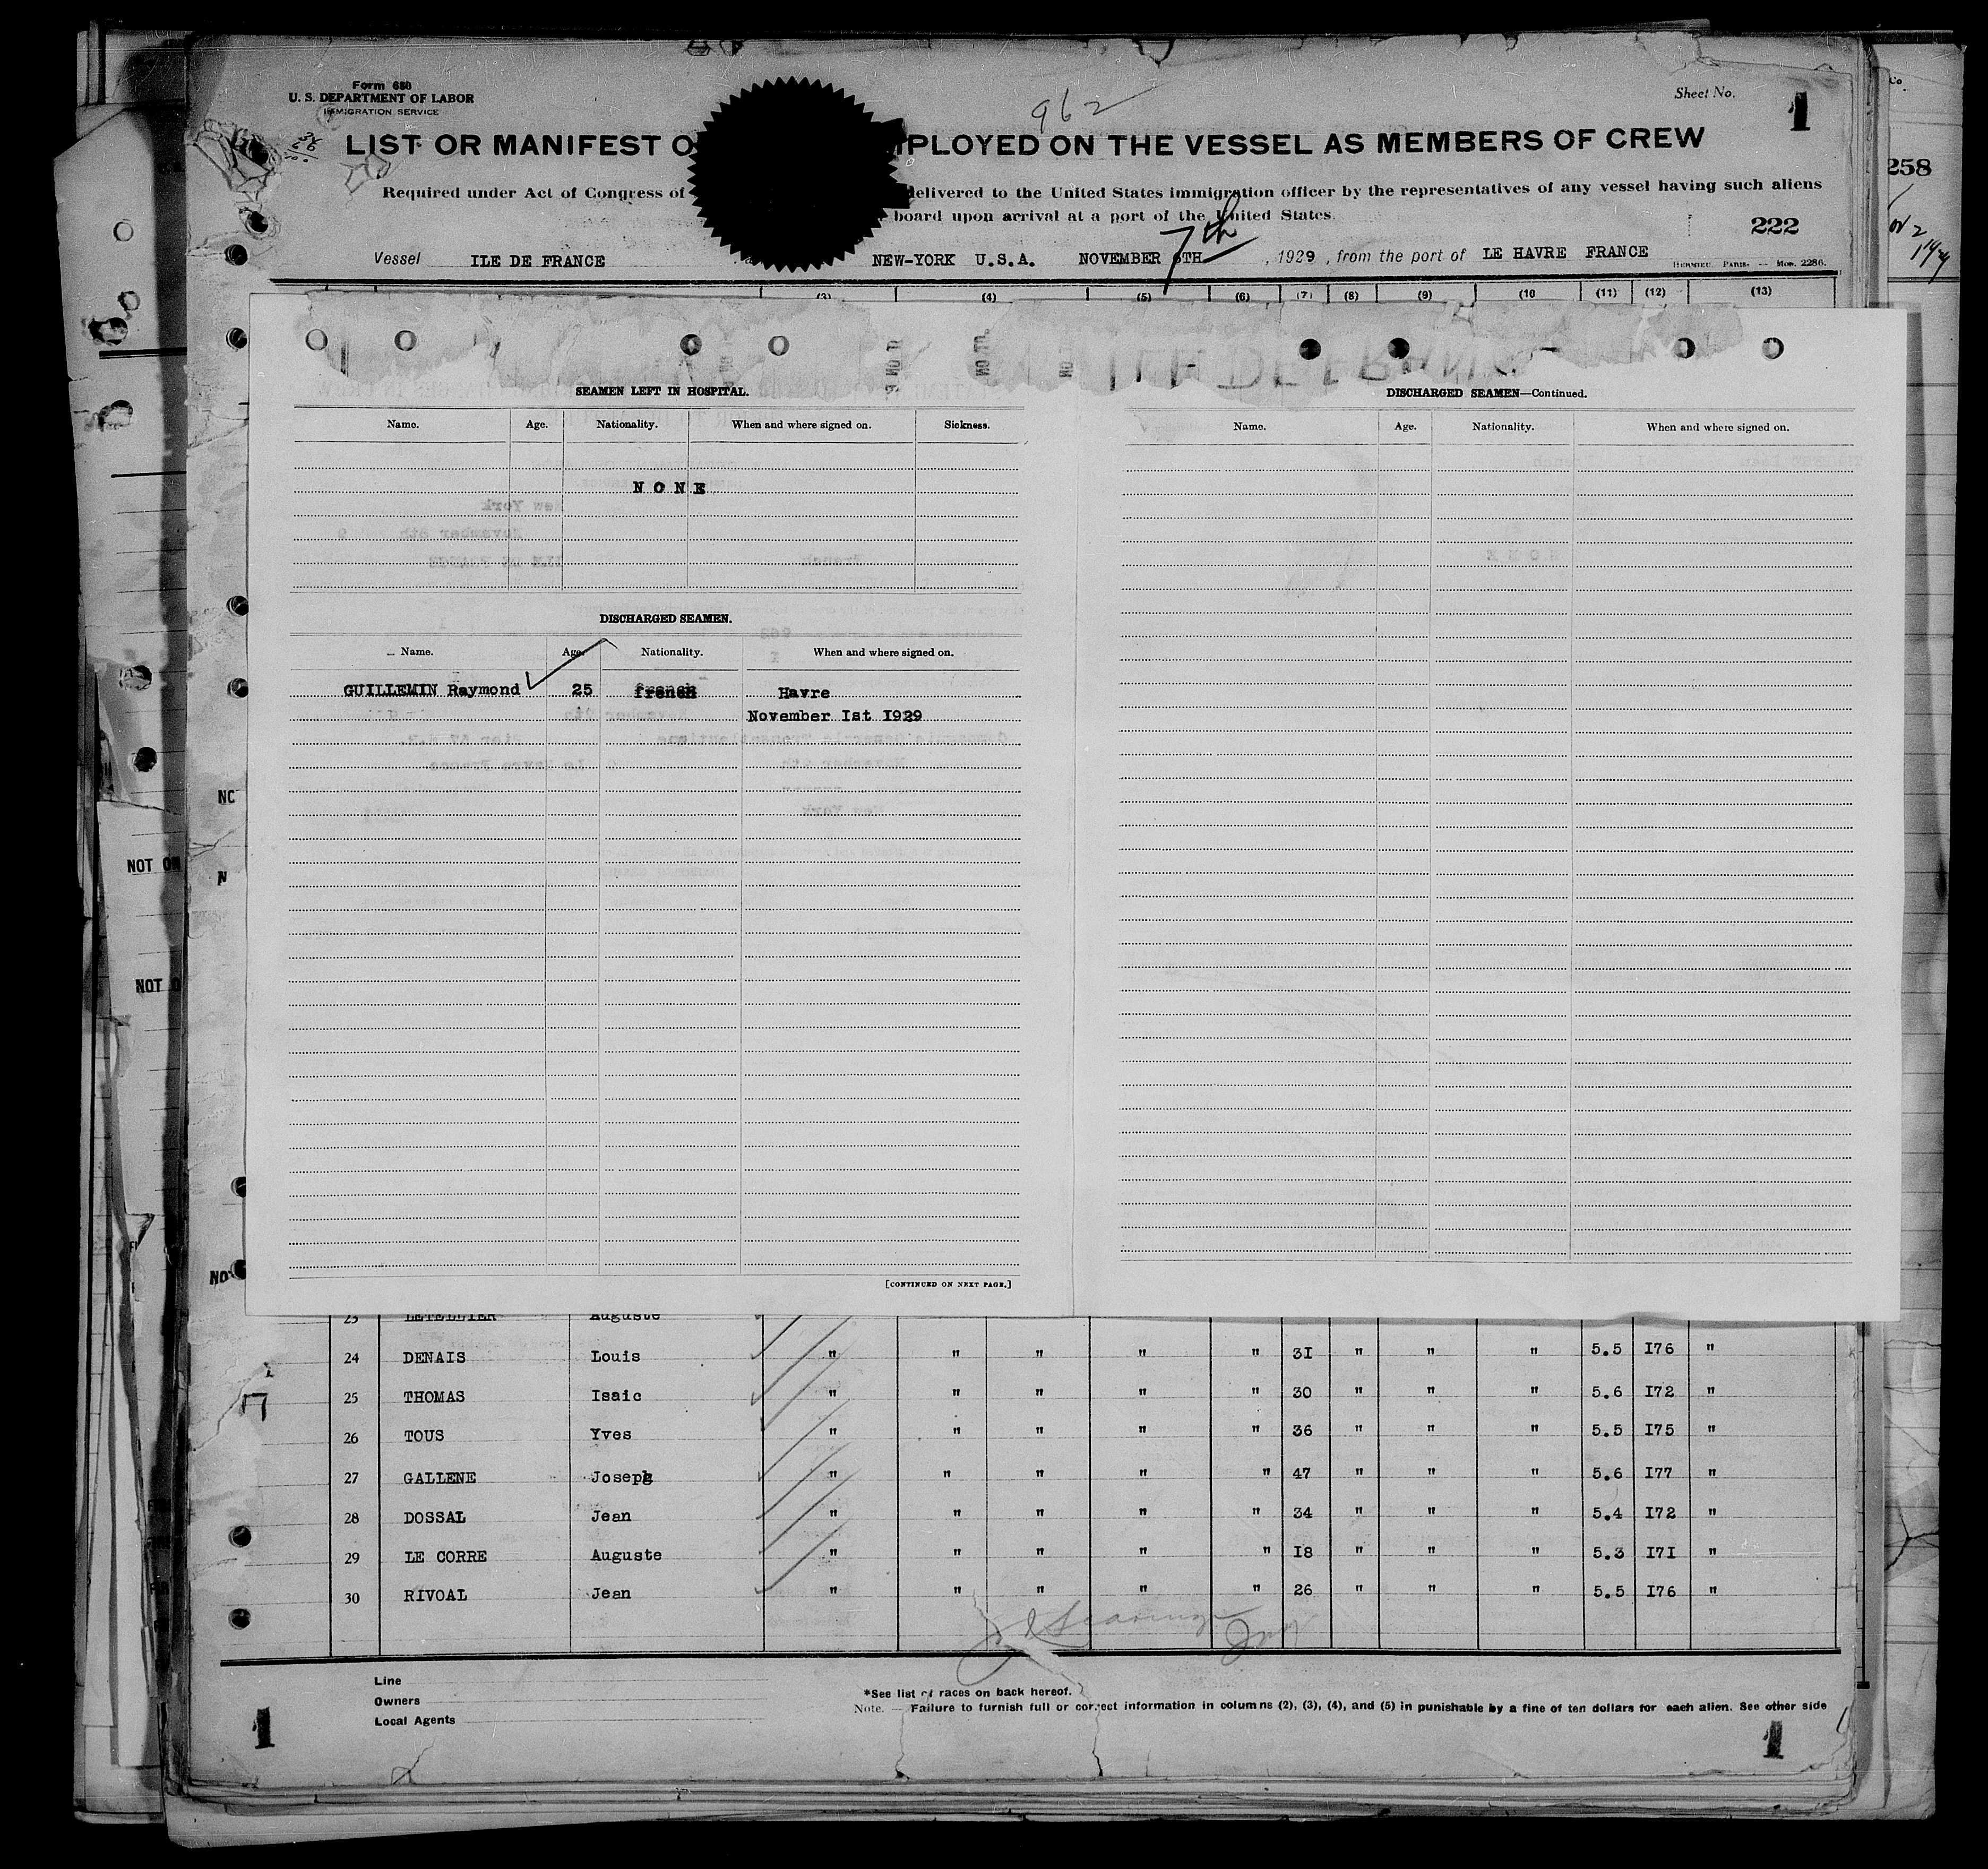 Form 680
U. S. DEPARTMENT OF LABOR
IMMIGRATION SERVICE
962
Sheet No. 1
LIST OR MANIFEST O MPLOYED ON THE VESSEL AS MEMBERS OF CREW
Required under Act of Congress of delivered to the United States immigration officer by the representatives of any vessel having such aliens
board upon arrival at a port of the United States.
222
258
7th
Vessel ILE DE FRANCE NEW-YORK U.S.A. NOVEMBER 6TH , 1929 , from the port of LE HAVRE FRANCE
HERMIEU, PARIS. — Mod. 2286.
(3) (4) (5) (6) (7) (8) (9) (10 (11) (12) (13)
ILE DE FRANCE
SEAMEN LEFT IN HOSPITAL.
Name. Age. Nationality. When and where signed on. Sickness.
N O N E
DISCHARGED SEAMEN.
Name. Age. Nationality. When and where signed on.
GUILLEMIN Raymond 25 french Havre
November Ist I929
[CONTINUED ON NEXT PAGE.]
DISCHARGED SEAMEN—Continued.
Name. Age. Nationality. When and where signed on.
NOT O
NOT O
23 LETELLIER Auguste
24 DENAIS Louis " " " " " 3I " " " 5.5 I76 "
25 THOMAS Isaic " " " " " 30 " " " 5.6 I72 "
26 TOUS Yves " " " " " 36 " " " 5.5 I75 "
27 GALLENE Joseph " " " " " 47 " " " 5.6 I77 "
28 DOSSAL Jean " " " " " 34 " " " 5.4 I72 "
29 LE CORRE Auguste " " " " " I8 " " " 5.3 I7I "
30 RIVOAL Jean " " " " " 26 " " " 5.5 I76 "
Line
Owners
Local Agents
*See list of races on back hereof.
Note. — Failure to furnish full or correct information in columns (2), (3), (4), and (5) in punishable by a fine of ten dollars for each alien. See other side
1
1